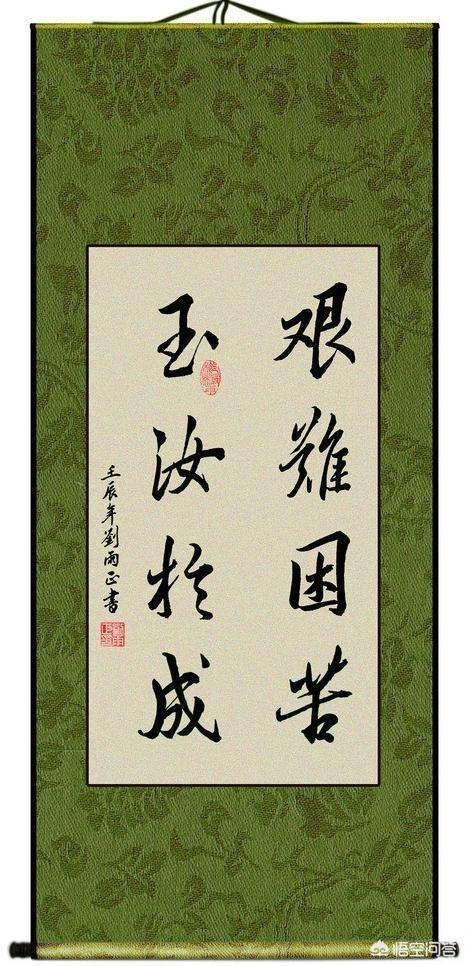 艱難困苦
玉汝於成
壬辰年劉雨正書
悟空问答